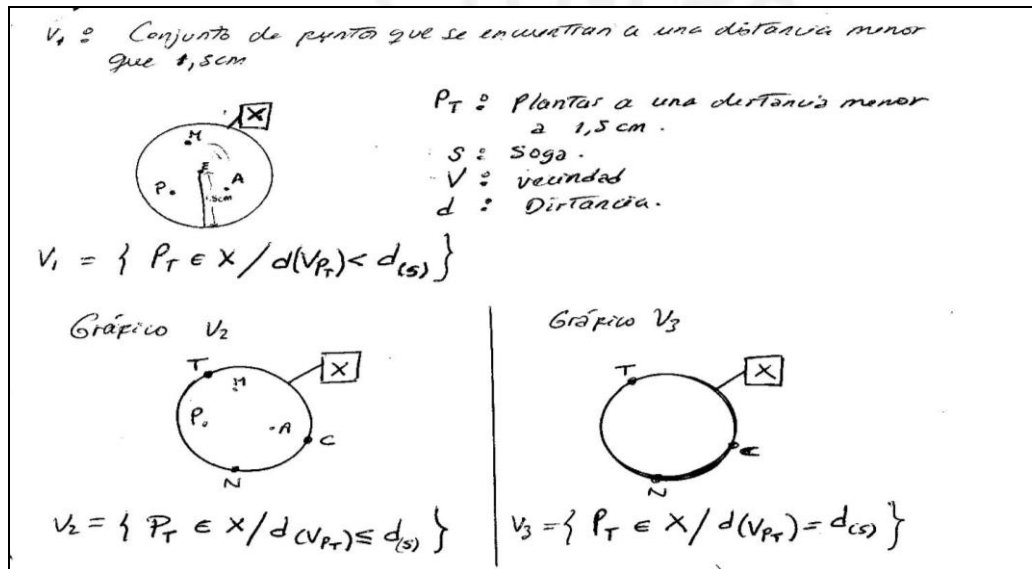 V₁ : Conjunto de puntos que se encuentran a una distancia menor
que 1,5cm
X
M
E
P. A
1.5cm
P_T : Plantas a una distancia menor
a 1,5 cm.
S : Soga.
V : vecindad
d : Distancia.
V₁ = { P_T ∈ X / d(V_{P_T}) < d_(s) }
Gráfico V₂
T
M
X
P.
.A
C
N
V₂ = { P_T ∈ X / d(V_{P_T}) ≤ d_(s) }
Gráfico V₃
T
X
C
N
V₃ = { P_T ∈ X / d(V_{P_T}) = d_(s) }